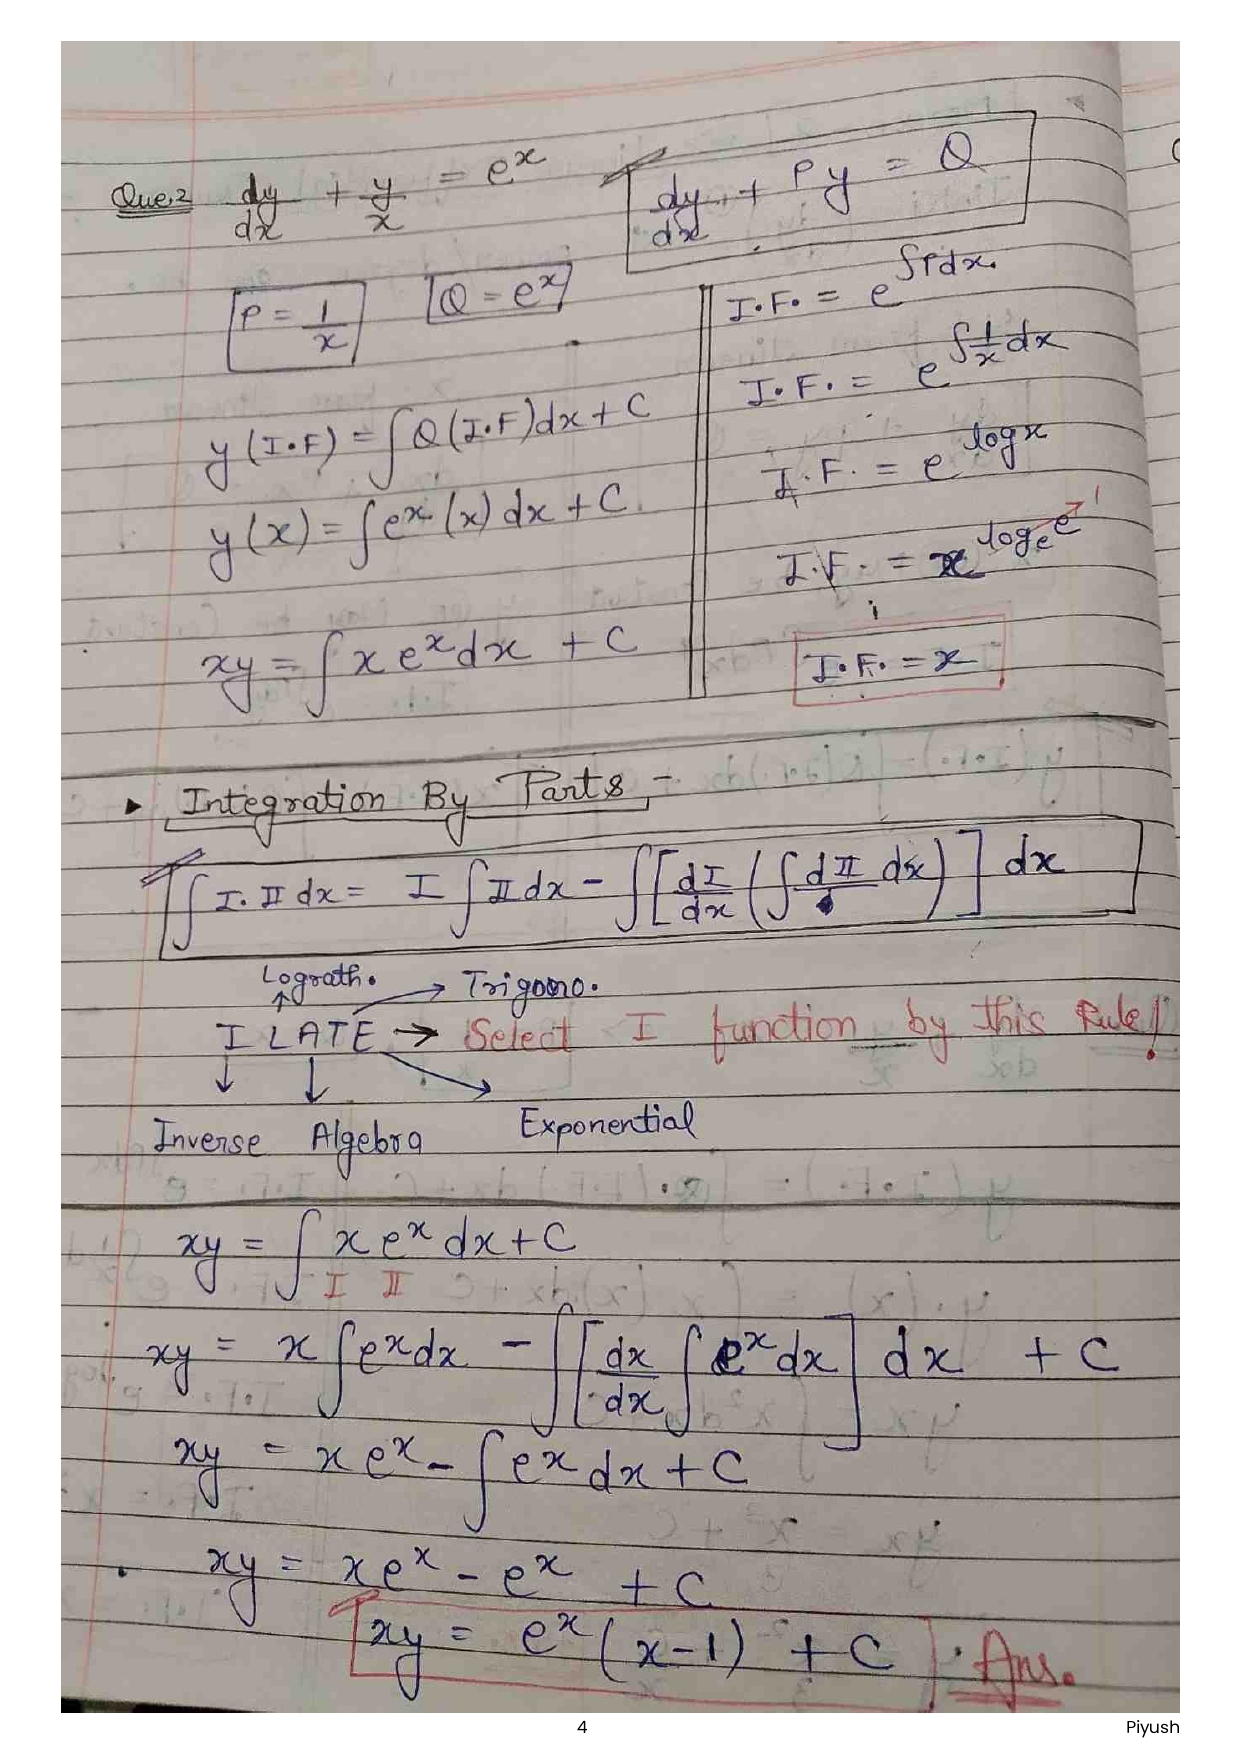 Que.2 dy/dx + y/x = e^x
dy/dx + Py = Q
P = 1/x
Q = e^x
y(I.F) = ∫Q(I.F)dx + C
y(x) = ∫e^x.(x)dx + C
xy = ∫x e^x dx + C
I.F. = e^∫Pdx.
I.F. = e^∫1/x dx
I.F. = e^log x
I.F. = x^log_e e → 1
I.F. = x
▸ Integration By Parts -
∫I.II dx = I∫II dx - ∫[dI/dx (∫dII dx)] dx
Lograth. → Trigono.
ILATE → Select I function by this Rule!
Inverse Algebra Exponential
xy = ∫x e^x dx + C
I II
xy = x∫e^x dx - ∫[dx/dx ∫e^x dx] dx + C
xy = x e^x - ∫e^x dx + C
xy = xe^x - e^x + C
xy = e^x (x-1) + C . Ans.
4 Piyush